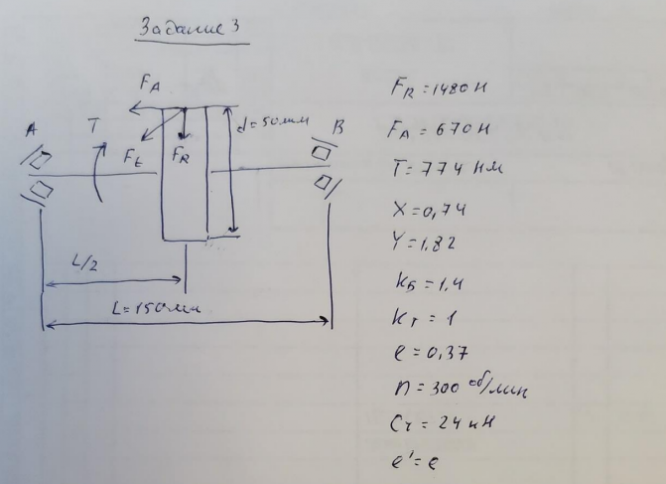 Задание 3
F_A
A
T
F_t
F_R
d=50мм
B
L/2
L=150мм
F_R=1480Н
F_A=670Н
T=774 Нм
X=0,74
Y=1,82
k_Б=1,4
k_т=1
e=0,37
n=300 об/мин
C_r=24кН
e'=e